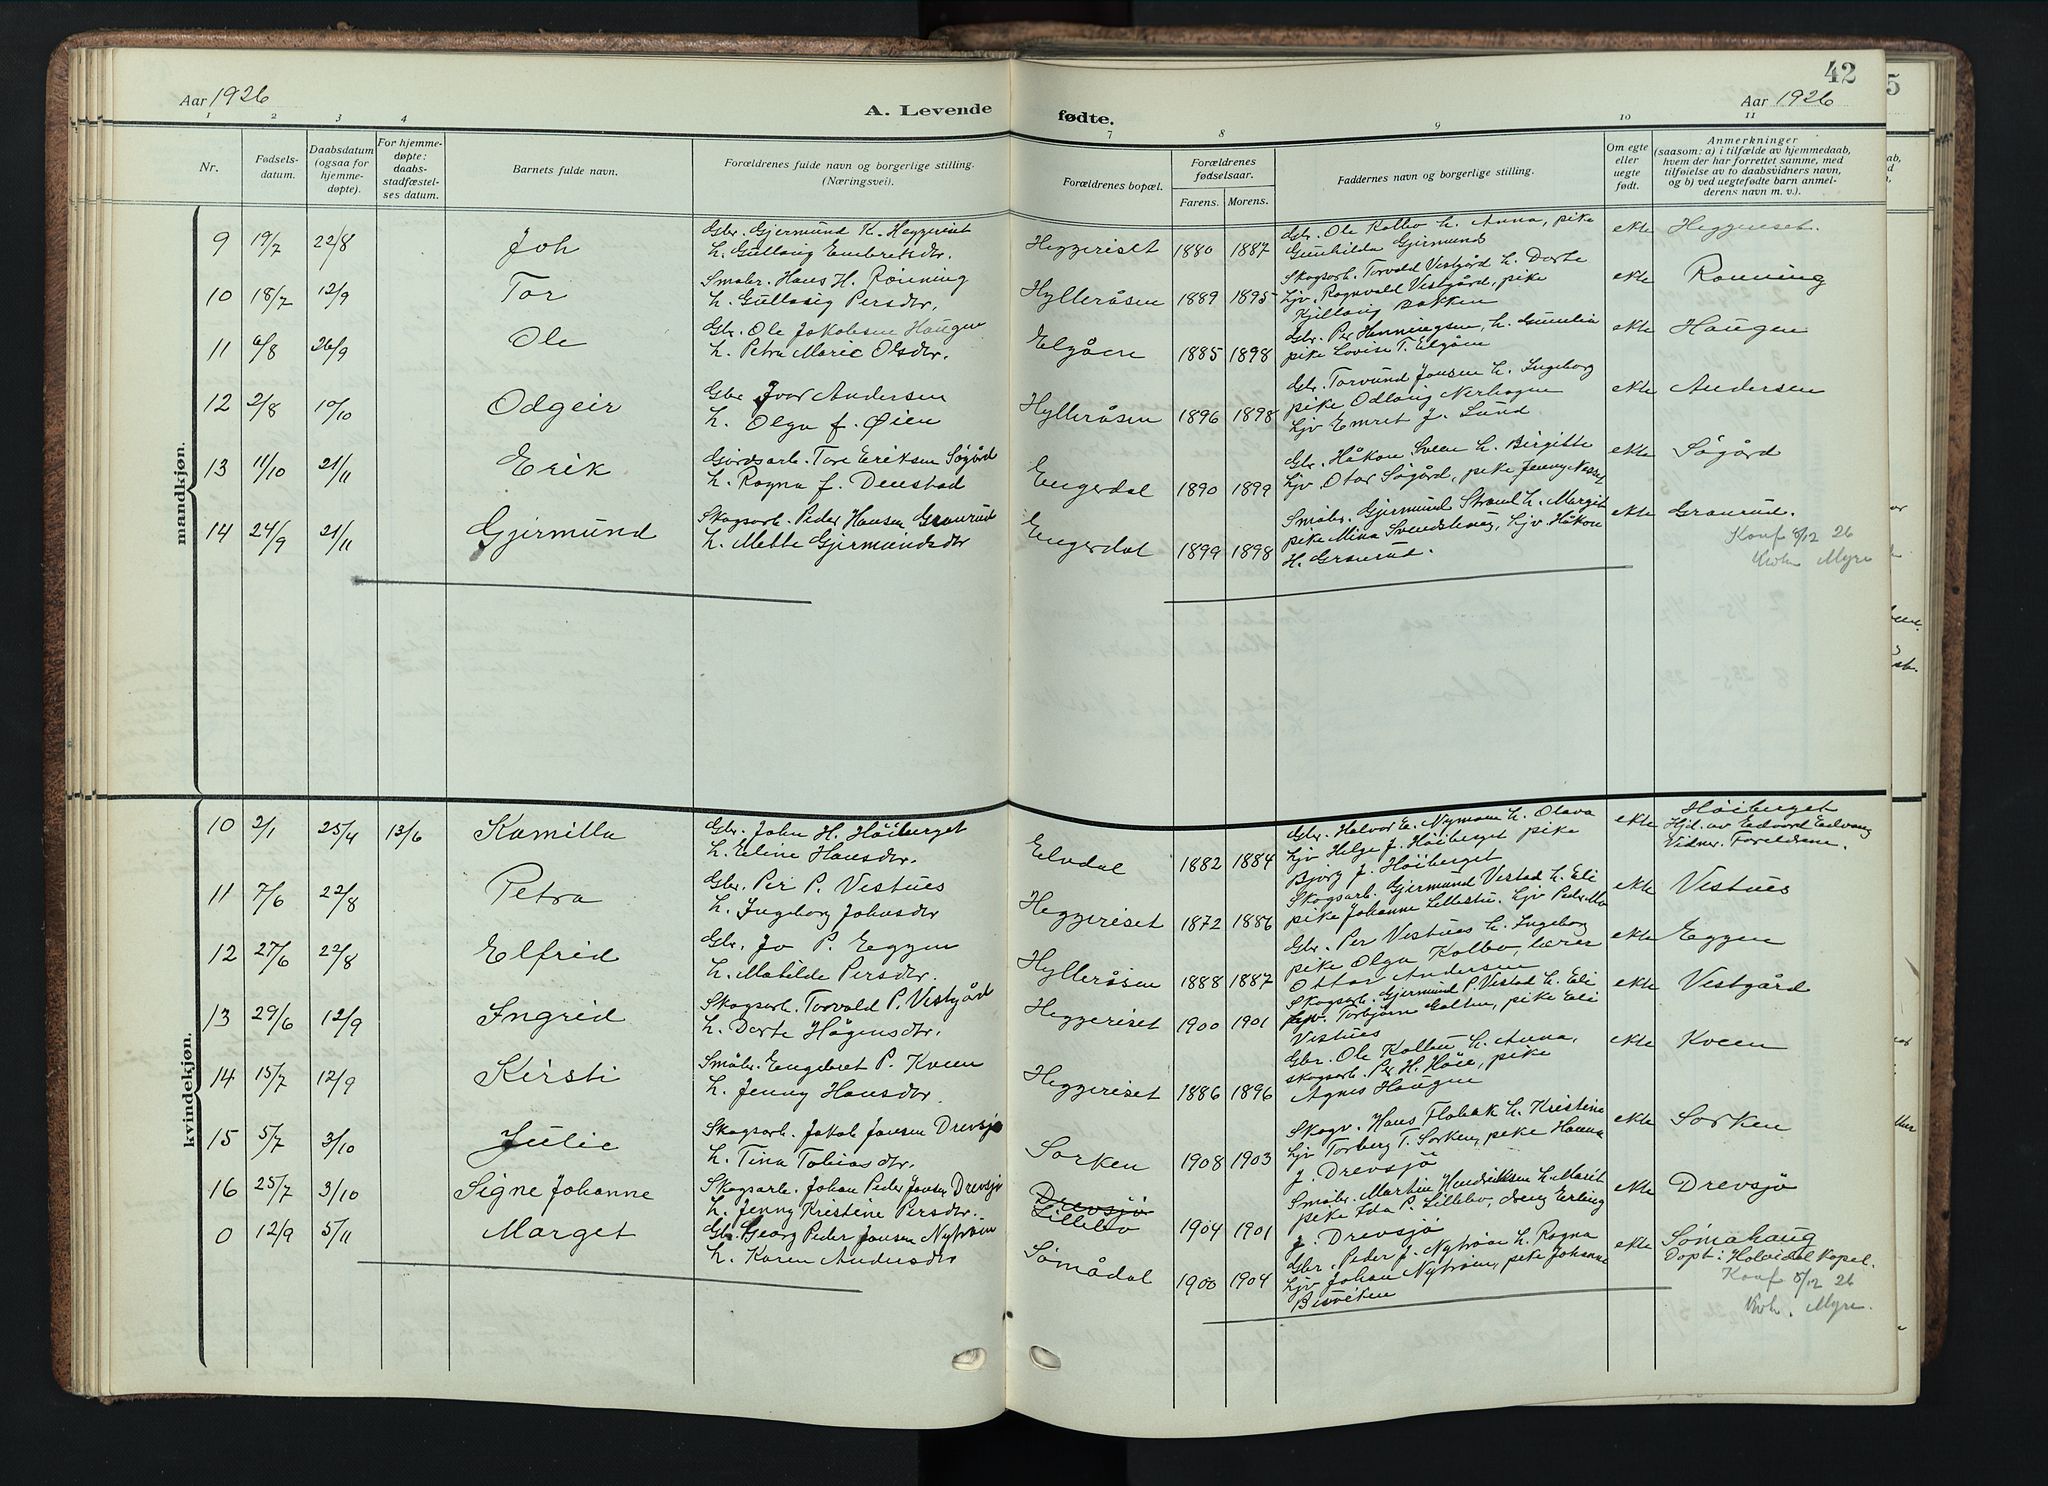 42
5
Aar 1926
A. Levende
fødte.
Aar 1926
1 2 3 4 7 8 9 10 11
Nr.
Fødsels-
datum.
Daabsdatum
(ogsaa for
hjemme-
døpte).
For hjemme-
døpte:
daabs-
stadfæstel-
ses datum.
Barnets fulde navn.
Forældrenes fulde navn og borgerlige stilling.
(Næringsvei).
Forældrenes bopæl.
Forældrenes
fødselsaar.
Farens. Morens.
Faddernes navn og borgerlige stilling.
Om egte
eller
uegte
født.
Anmerkninger
(saasom: a) i tilfælde av hjemmedaab,
hvem der har forrettet samme, med
tilføielse av to daabsvidners navn,
og b) ved uegtefødte barn anmel-
derens navn m. v.).
mandkjøn.
9 19/7 22/8 Joh
Gbr. Gjermund K. Heggeriset
h. Gullaug Embretsdtr.
Heggeriset 1880 1887
Gbr. Ole Kolbo h. Anna, pike
Gunhilda Gjermunds
ekte Heggeriset.
10 18/7 12/9 Tor
Småbr. Hans H. Rønning
h. Gullaug Persdtr.
Hylleråsen 1889 1895
Skogsarb. Torvald Vestgård h. Dorte
Ljv. Ragnvald Vestgård, pike
Kjellaug Bakken
ekte Rønning
11 6/8 26/9 Ole
Gbr. Ole Jakobsen Haugen
h. Petra Marie Olsdtr.
Elgåen 1885 1898
Gbr. Per Henningsen, h. Gunelia
pike Lovise T. Elgåen
ekte Haugen
12 2/8 10/10 Odgeir
Gbr Ivar Andersen
h. Olga f. Øien
Hylleråsen 1896 1898
Gbr. Torvund Jonsen h. Ingeborg
pike Odlaug Nerhagen
Ljv Emret J. Lund
ekte Andersen
13 11/10 21/11 Erik
Gårdsarb. Tore Eriksen Søgård
h. Ragna f. Denstad
Engerdal 1890 1899
Gbr. Håkon Sveen h. Birgitte
Ljv. Otar Søgård, pike Jenny
ekte Søgård
14 24/9 21/11 Gjermund
Skogsarb. Peder Hansen Granrud
h. Mette Gjermundsdtr
Engerdal 1899 1898
Småbr. Gjermund Strand h. Margit
pike Mina Svendshaug, Ljv Håkon
H. Granrud.
ekte Granrud.
Konf 8/12 26
Myre
kvindekjøn.
10 2/1 25/4 13/6 Kamilla
Gbr. John H. Høiberget
h. Eline Hansdtr.
Elvdal 1882 1884
Gbr. Halvor E. Nymoen h. Olava
Ljv Helge J. Høiberget pike
Bjørg J. Høiberget
ekte Høiberget
Hjd. av Edvard Elvang
Vidner. Foreldrene.
11 7/6 22/8 Petra
Gbr. Per P. Vestues
h. Ingeborg Johnsdtr
Heggeriset 1872 1886
Skogsarb. Gjermund Vestad h. Eli
pike Johanne Lillestu. Ljv Peder Mo
ekte Vestues
12 27/6 22/8 Elfrid
Gbr. Jo P. Eggen
h. Matilde Persdtr.
Hylleråsen 1888 1887
Gbr. Per Vestues h. Ingeborg
pike Olga Kolbo, lærer
Ottar Andersen
ekte Eggen
13 29/6 12/9 Ingrid
Skogsarb. Torvald P. Vestgård
h. Dorte Høgensdtr.
Heggeriset 1900 1901
Skogsarb. Gjermund P. Vestad h. Eli
Ljv. Torbjørn Galten, pike Eli
Vestues
ekte Vestgård
14 15/7 12/9 Kirsti
Småbr. Engebret P. Kveen
h. Jenny Hansdtr
Heggeriset 1886 1896
Gbr. Ole Kolbu h. Anna,
skogsarb. Per H. Høe, pike
Agnes Haugen
ekte Kveen
15 5/7 3/10 Julie
Skogsarb. Jakob Jonsen Drevsjø
h. Tina Tobiasdtr.
Sorken 1908 1903
Skogv. Hans Flobak h. Kristine
Ljv Torberg T. Sorken, pike Hanna
J. Drevsjö
ekte Sorken
16 25/7 3/10 Signe Johanne
Skogsarb. Johan Peder Jonsen Drevsjø
h. Jenny Kristine Persdtr.
Drevsjö
Lillebo 1904 1901
Småbr. Martin Hendriksen h. Marit
pike Ida P. Lillebo, dreng Erling
J. Drevsjö
ekte Drevsjö
0 12/9 5/11 Marget
Gbr. Georg Peder Jonsen Nytrøen
h. Karen Andersdtr
Sømådal 1900 1904
Gbr. Peder J. Nytrøen h. Ragna
Ljv Johan Nytrøen, pike Johanne
Bisviken
ekte Sømåhaug
Døpt: Holvidal Kapel.
Konf 8/12 26
Myre.